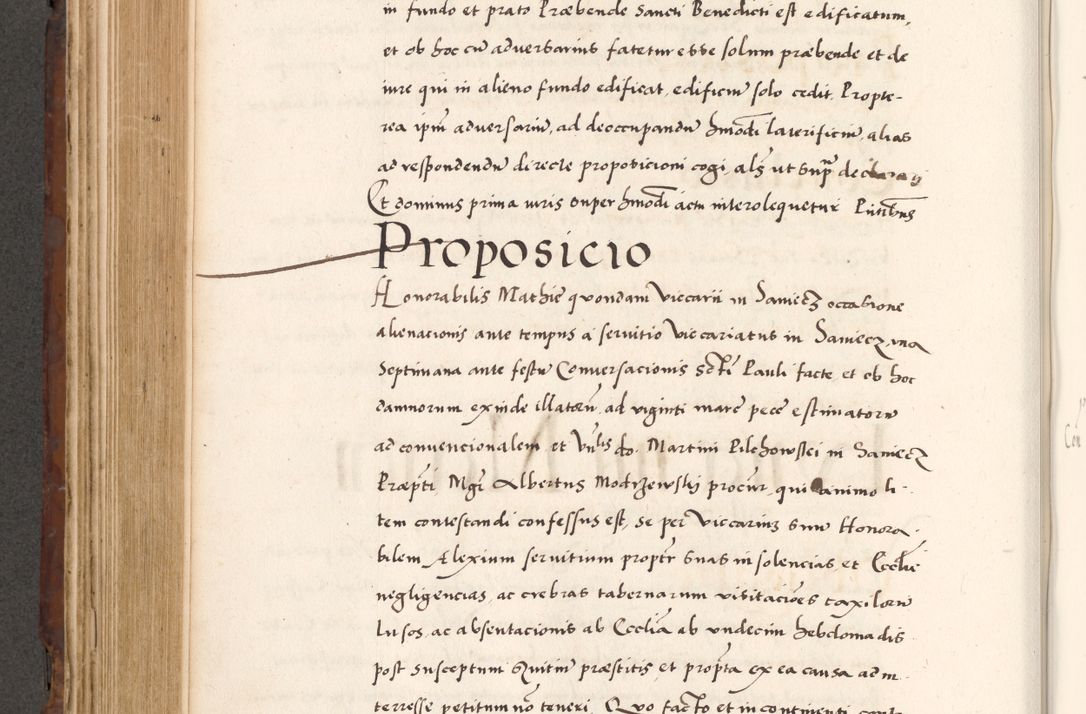 in fundo et prato Præbende Sancti Benedicti est edificatum,
et ob hoc cū adversarius fatetur esse solum præbende et de
iure qui in alieno fundo edificat, edificiū solo cedit. Propte-
rea ipm̄ adversariū, ad deoccupandū hm̄odi laterificiū, alias
ad respondendū directe proposicioni cogi, als ut supra
Et dominus prima iuris super hm̄odi actu interolequetur Pūtibus
Proposicio
Honorabilis Mathie quondam Viccarii in Samiecz occasione
alienacionis ante tempus a servitio Viccariatus in Samiecz, una
Septimana ante festū Conversacionis Scti Pauli facte et ob hoc
damnorum exinde illatorū, ad viginti marc pece estimatorū
ad convencionalem et Vnlis do. Martini Pilchowski in Samiecz
Præpti, Mgr Albertus Modrzewskj procur, qui animo li-
tem contestandi confessus est, se per Viccariū suū Honora-
bilem Alexium servitium proptr suas insolencias, et Ecclie
negligencias, ac crebras tabernarum visitacioes taxilorū
lusos, ac absentacionis ab Ecclia ab undecim hebdomadis
post susceptum Quitiū præstitis, et propta ex ea causa ad in-
terresse petitum nō teneri, Quo facto et in continenti